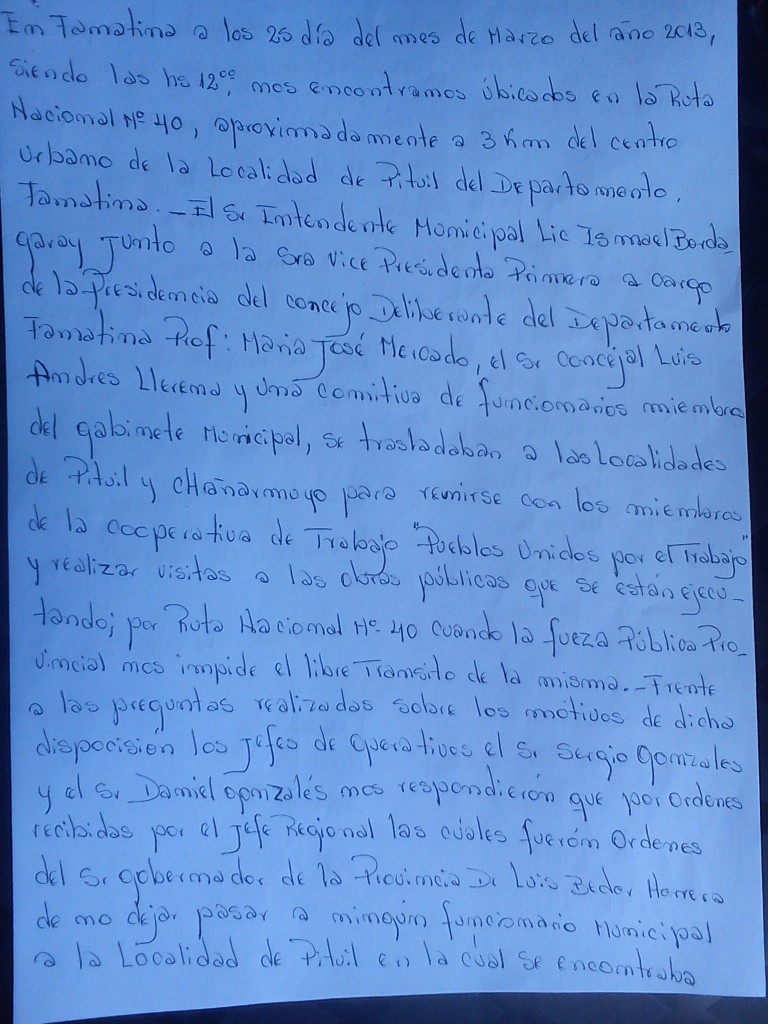 En Famatina a los 25 día del mes de Marzo del año 2013,
siendo las hs 12ºº, nos encontramos úbicados en la Ruta
Nacional Nº 40, aproximadamente a 3 Km del centro
urbano de la Localidad de Pituil del Departamento.
Famatina. - El Sr Intendente Municipal Lic Ismael Borda_
garay junto a la Sra Vice Presidenta Primera a cargo
de la Presidencia del concejo Deliberante del Departamento
Famatina Prof: Maria José Mercado, el Sr concejal Luis
Andres Llerena y una comitiva de funcionarios miembro
del gabinete Municipal, se trasladaban a las Localidades
de Pituil y CHañarmuyo para reunirse con los miembros
de la cooperativa de Trabajo "Pueblos Unidos por el Trabajo"
y realizar visitas a las obras públicas que se están ejecu_
tando; por Ruta Nacional Nº 40 cuando la fueza Pública Pro_
vincial nos impide el libre Transito de la misma. - Frente
a las preguntas realizadas sobre los mótivos de dicha
dispocisión los jefes de operativos el Sr Sergio Gonzales
y el Sr Daniel gonzalés nos respondierón que por ordenes
recibidas por el jefe Regional las cuales fuerón Ordenes
del Sr gobernador de la Provincia Dr Luis Beder Herrera
de no dejar pasar a ningún funcionario Municipal
a la Localidad de Pituil en la cúal se encontraba